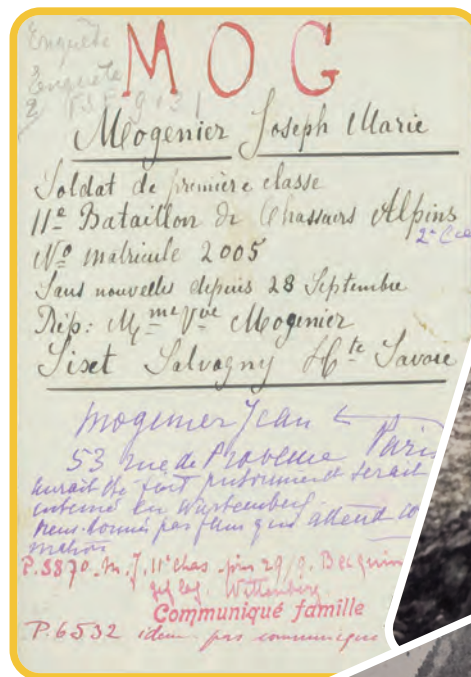 Enquête
MOG
Enquête
2
Mogenier Joseph Marie
Soldat de première classe
11e Bataillon de Chasseurs Alpins
2e Cie
No matricule 2005
Sans nouvelles depuis 28 Septembre
Rép: Mme Vve Mogenier
Sixt Salvagny Hte Savoie
Mogenier Jean
53 rue de Provence Paris
aurait été fait prisonnier et serait
interné en Wurtemberg
P.3870. M. J. 11e chas. 29/9.
Wittenberg
Communiqué famille
P.6532 idem pas communiqué